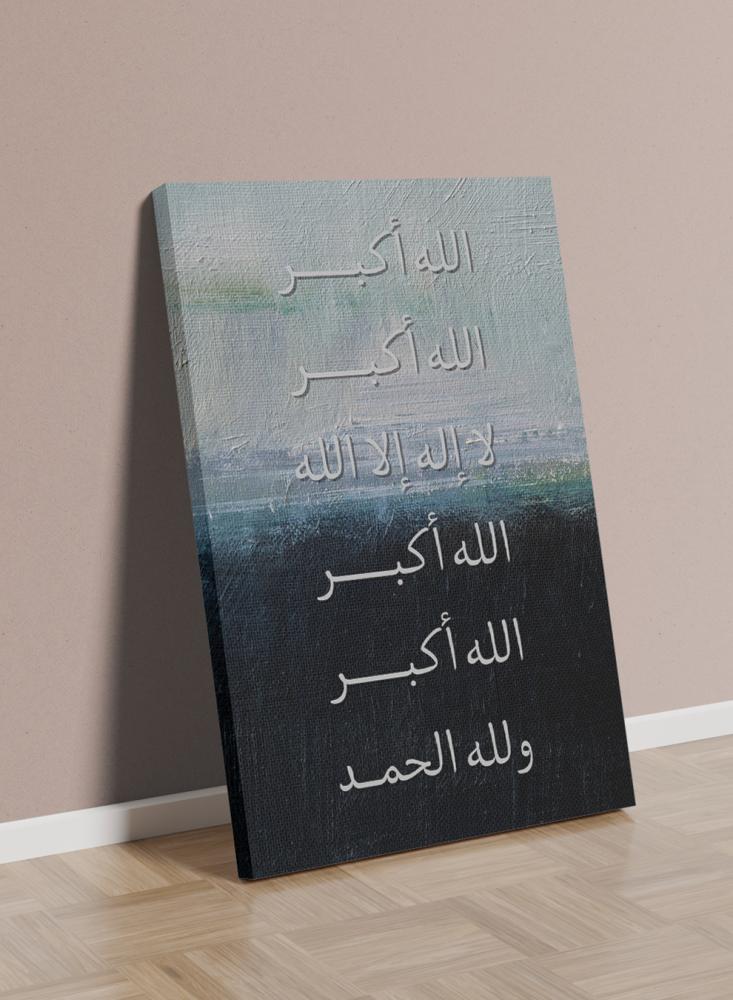 الله أكبر
الله أكبر
لا إله إلا الله
الله أكبر
الله أكبر
ولله الحمد